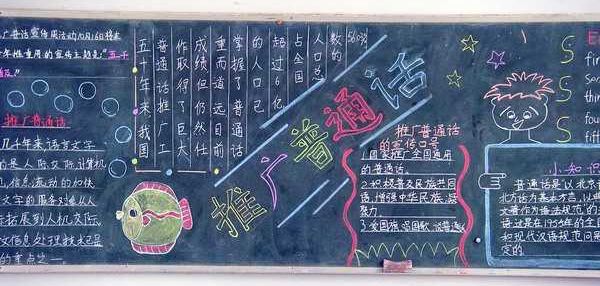 广普话宣传周活动10月16日将
十年推重用的宣传主题是:"五一千
推广普通话
几十年来语言文字
的是人际交际,计算机
信息流动的加快
文字的服务对象从人
际拓展到人机交际,
文信息处理技术已是
的重点之一
五十年来我国
普通话推广工
作取得了巨大
成绩但仍然任
重而道远目前
掌握了普通话
的人口已
超过6亿
占全国
人口总
数的
推广普通话
推广普通话
的宣传口号
1.国家推广全国通用
的普通话
2.积极普及民族共同
语,增强中华民族凝
聚力
3.爱国旗,唱国歌,说普通话
S
S
S
fir
Sec
thi
fou
fift
小知识
普通话是以北京语
北方话为基本方言,以
文著作为语法规范的
语这是在1955年的全国
和现代汉语规范问
定的